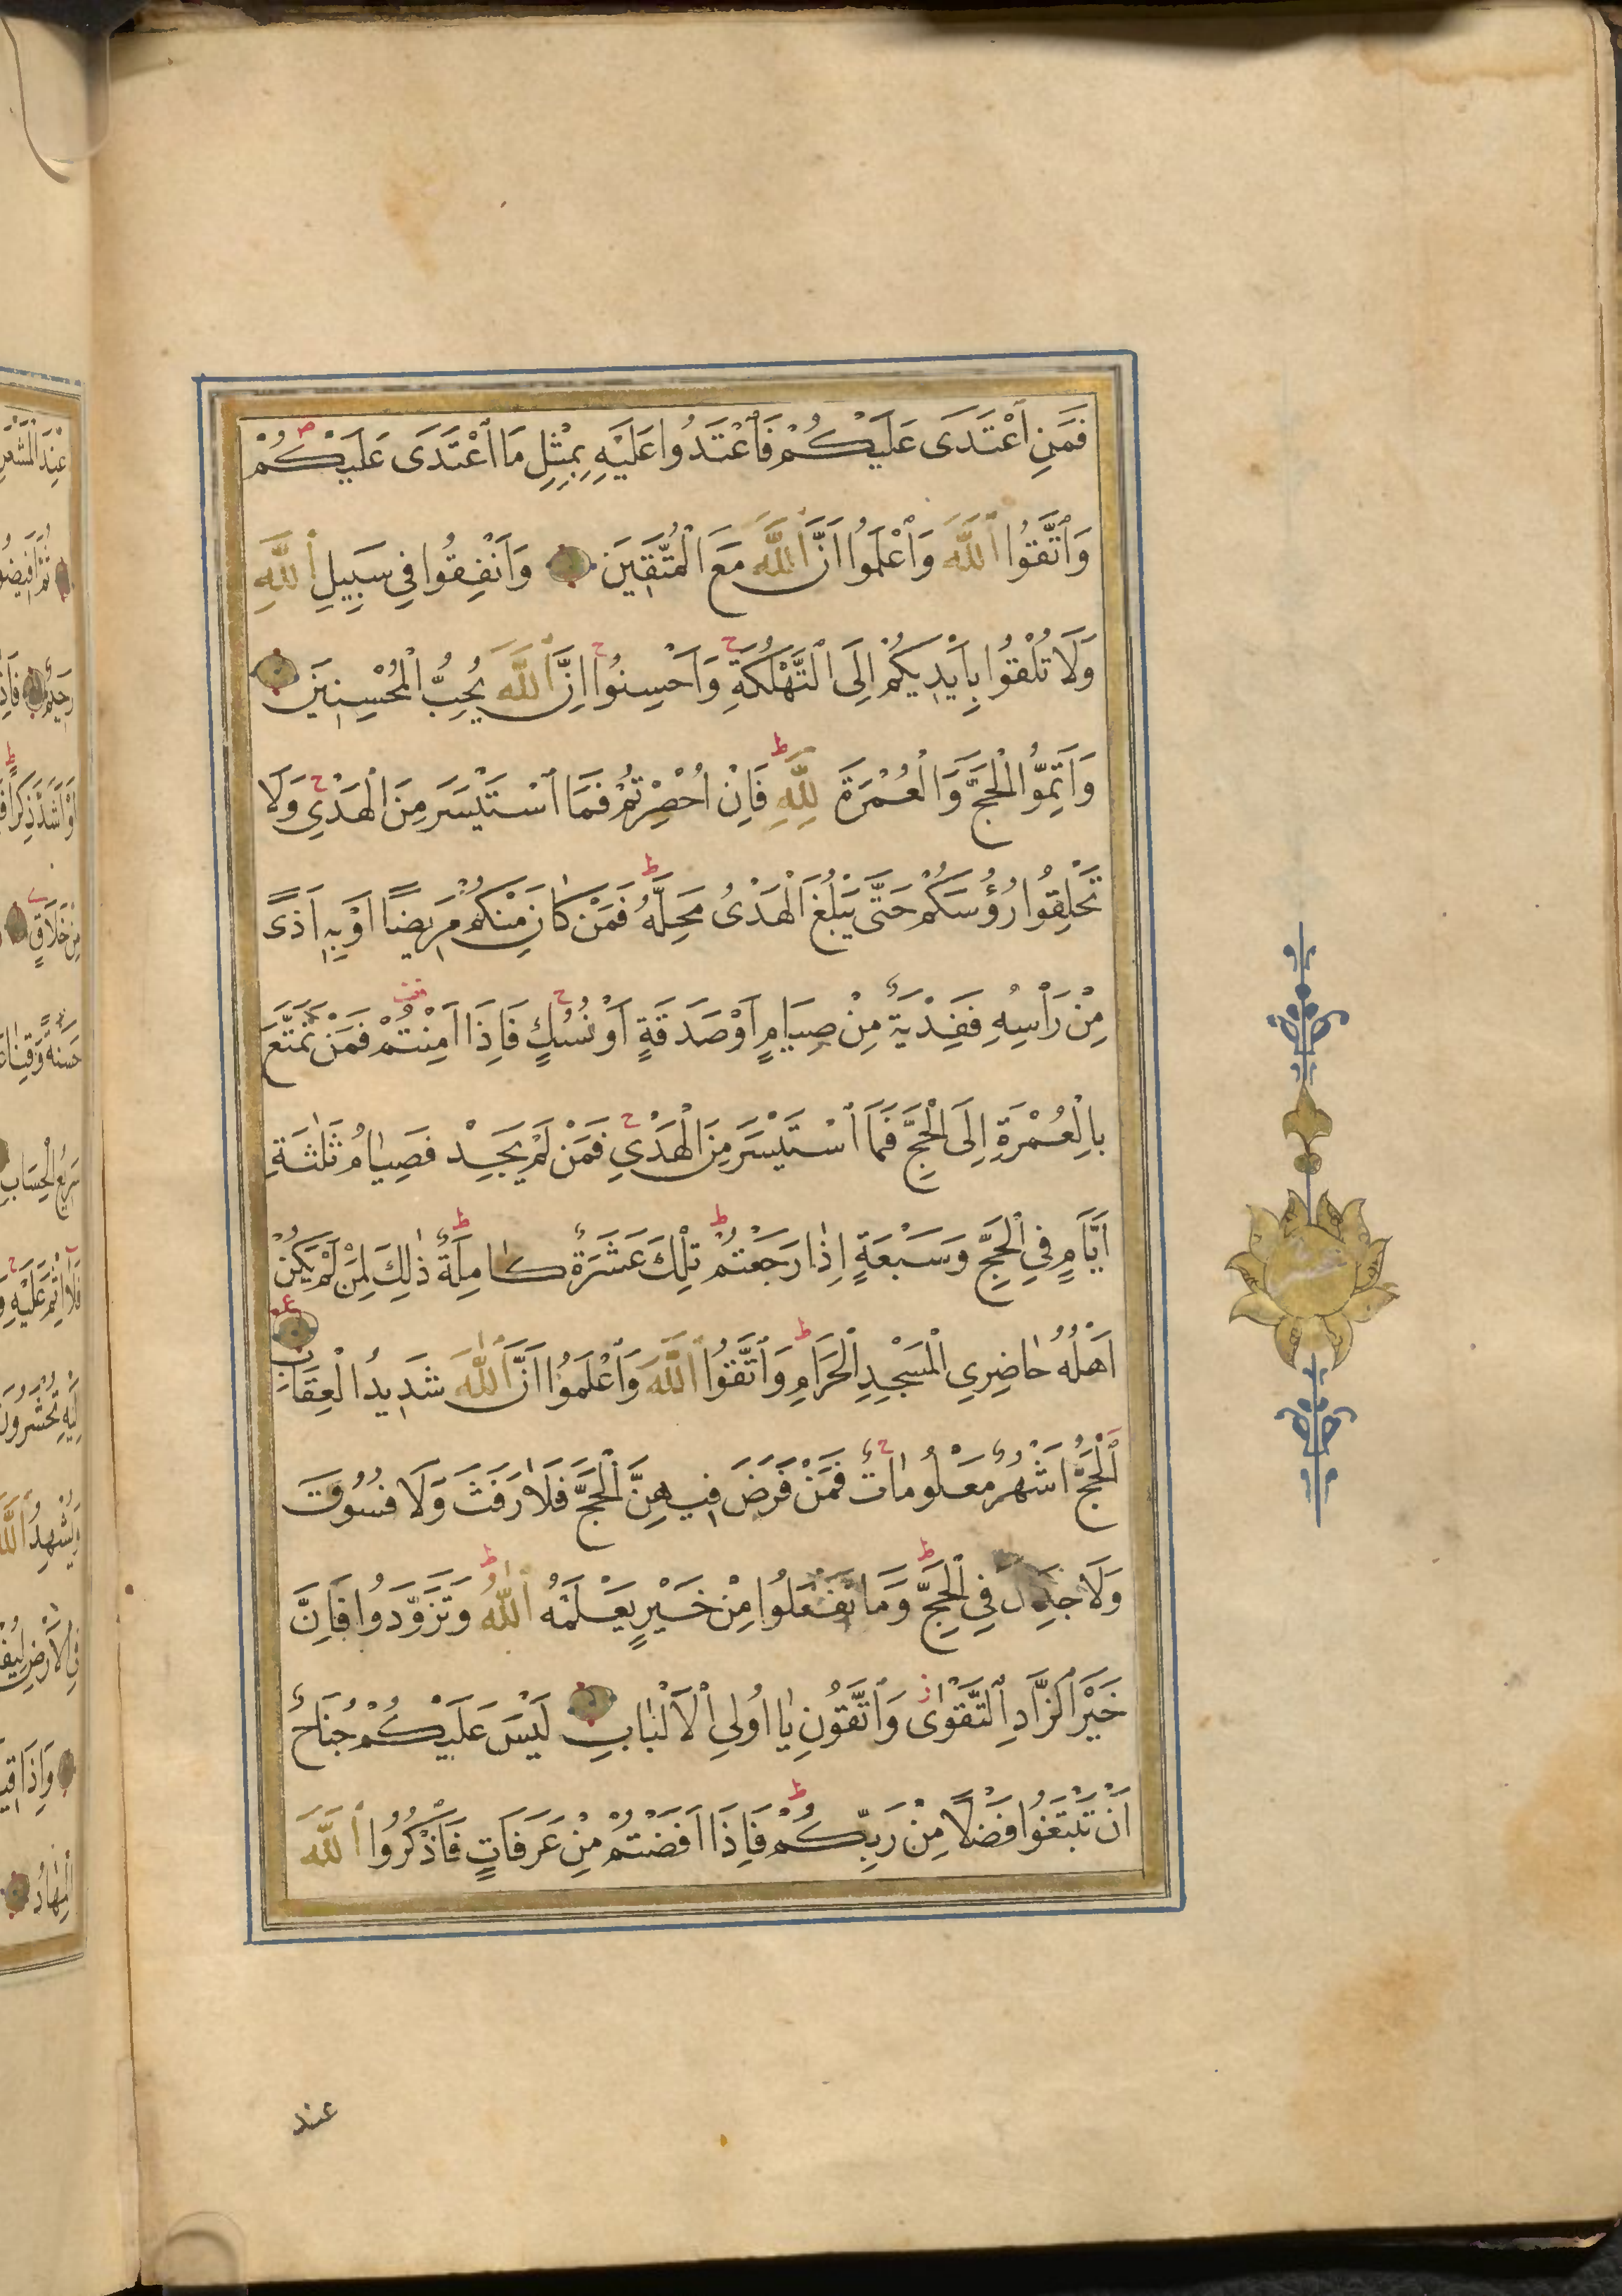 فَمَنِ اعْتَدَى عَلَيْكُمْ فَاعْتَدُوا عَلَيْهِ بِمِثْلِ مَا اعْتَدَى عَلَيْكُمْ
وَاتَّقُوا اللَّهَ وَاعْلَمُوا اَنَّ اللَّهَ مَعَ الْمُتَّقِينَ وَاَنْفِقُوا فِي سَبِيلِ اللَّهِ
وَلَا تُلْقُوا بِاَيْدِيكُمْ اِلَى التَّهْلُكَةِ وَاَحْسِنُوا اِنَّ اللَّهَ يُحِبُّ الْمُحْسِنِينَ
وَاَتِمُّوا الْحَجَّ وَالْعُمْرَةَ لِلَّهِ فَاِنْ اُحْصِرْتُمْ فَمَا اسْتَيْسَرَ مِنَ الْهَدْيِ وَلَا
تَحْلِقُوا رُؤُسَكُمْ حَتَّى يَبْلُغَ الْهَدْىُ مَحِلَّهُ فَمَنْ كَانَ مِنْكُمْ مَرِيضًا اَوْ بِهِ اَذًى
مِنْ رَاْسِهِ فَفِدْيَةٌ مِنْ صِيَامٍ اَوْ صَدَقَةٍ اَوْ نُسُكٍ فَاِذَا اَمِنْتُمْ فَمَنْ تَمَتَّعَ
بِالْعُمْرَةِ اِلَى الْحَجِّ فَمَا اسْتَيْسَرَ مِنَ الْهَدْيِ فَمَنْ لَمْ يَجِدْ فَصِيَامُ ثَلٰثَةِ
اَيَّامٍ فِي الْحَجِّ وَسَبْعَةٍ اِذَا رَجَعْتُمْ تِلْكَ عَشَرَةٌ كَامِلَةٌ ذٰلِكَ لِمَنْ لَمْ يَكُنْ
اَهْلُهُ حَاضِرِي الْمَسْجِدِ الْحَرَامِ وَاتَّقُوا اللَّهَ وَاعْلَمُوا اَنَّ اللَّهَ شَدِيدُ الْعِقَابِ
اَلْحَجُّ اَشْهُرٌ مَعْلُومَاتٌ فَمَنْ فَرَضَ فِيهِنَّ الْحَجَّ فَلَا رَفَثَ وَلَا فُسُوقَ
وَلَا جِدَالَ فِي الْحَجِّ وَمَا تَفْعَلُوا مِنْ خَيْرٍ يَعْلَمْهُ اللَّهُ وَتَزَوَّدُوا فَاِنَّ
خَيْرَ الزَّادِ التَّقْوٰى وَاتَّقُونِ يَا اُولِي الْاَلْبَابِ لَيْسَ عَلَيْكُمْ جُنَاحٌ
اَنْ تَبْتَغُوا فَضْلًا مِنْ رَبِّكُمْ فَاِذَا اَفَضْتُمْ مِنْ عَرَفَاتٍ فَاذْكُرُوا اللَّهَ
عند